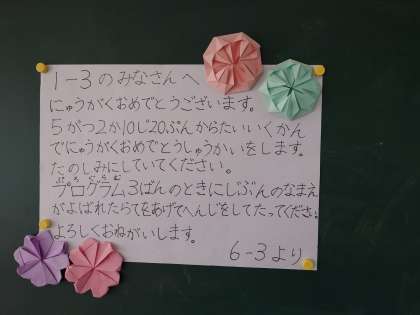 1-3のみなさんへ
にゅうがくおめでとうございます。
5がつ2か10じ20ぷんからたいいくかん
でにゅうがくおめでとうしゅうかいをします。
たのしみにしていてください。
ぷろぐらむ
プログラム3ばんのときにじぶんのなまえ
がよばれたらてをあげてへんじをしてたってください。
よろしくおねがいします。
6-3より